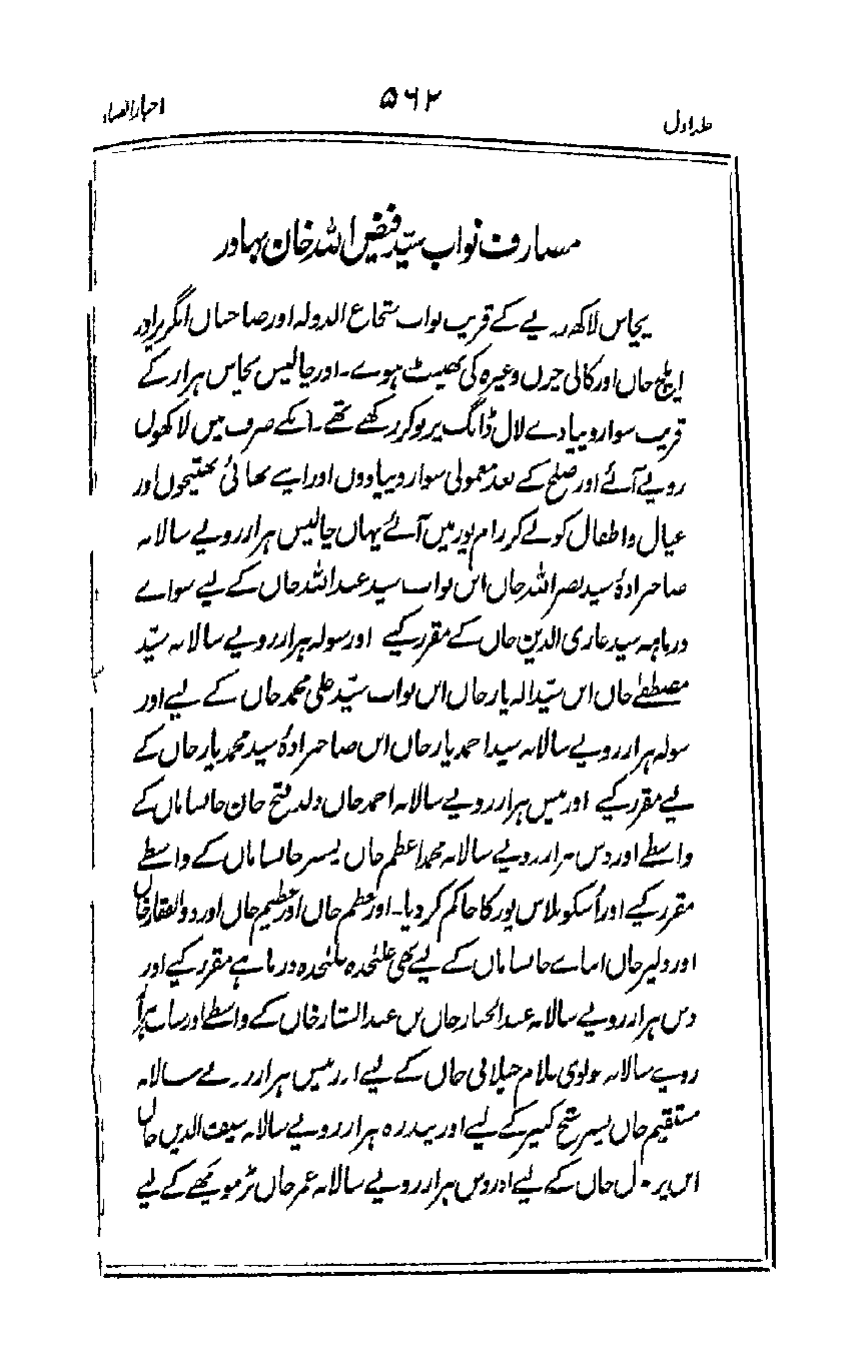 جلد اول
۵۶۲
اخبار الصنادید
مصارف نواب سیّد فیض اللہ خان بہادر
پچاس لاکھ روپیے کے قریب نواب شجاع الدولہ اور صاحبان انگریز اور
ایلچ خاں اور کالی چرن وغیرہ کی بھینٹ ہوے۔ اور چالیس پچاس ہزار کے
قریب سوار و پیادے لال ڈانگ پر نوکر رکھے تھے۔ انکے صرف میں لاکھوں
روپیے آئے اور صلح کے بعد معمولی سوار و پیادوں اور اپنے بھائی بھتیجوں اور
عیال و اطفال کو لے کر رام پور میں آئے یہاں چالیس ہزار روپیے سالانہ
صاحبزادۂ سید نصر اللہ خاں ابن نواب سید عبد اللہ خاں کے لیے سواے
درماہہ سید غازی الدین خاں کے مقرر کیے اور سولہ ہزار روپیے سالانہ سیّد
مصطفےٰ خاں ابن سیّد الہ یار خاں ابن نواب سیّد علی محمد خاں کے لیے اور
سولہ ہزار روپیے سالانہ سید احمد یار خاں ابن صاحبزادۂ سید محمد یار خاں کے
لیے مقرر کیے اور بیس ہزار روپیے سالانہ احمد خاں ولد فتح خان خانساماں کے
واسطے اور دس ہزار روپیے سالانہ محمد اعظم خاں پسر خانساماں کے واسطے
مقرر کیے اور اُسکو بلاس پور کا حاکم کر دیا۔ اور معظم خاں اور عظیم خاں اور ذوالفقار خاں
اور دلیر خاں ابناے خانساماں کے لیے بھی علیٰحدہ علیٰحدہ درماہے مقرر کیے اور
دس ہزار روپیے سالانہ عبد الجبار خاں بن عبد الستار خاں کے واسطے اور سات ہزار
روپیے سالانہ مولوی غلام جیلانی خاں کے لیے اور بیس ہزار روپیے سالانہ
مستقیم خاں پسر شیخ کبیر کے لیے اور پندرہ ہزار روپیے سالانہ سیف الدین خاں
ابن خاں کے لیے اور دس ہزار روپیے سالانہ عمر خاں بڑمونچھے کے لیے